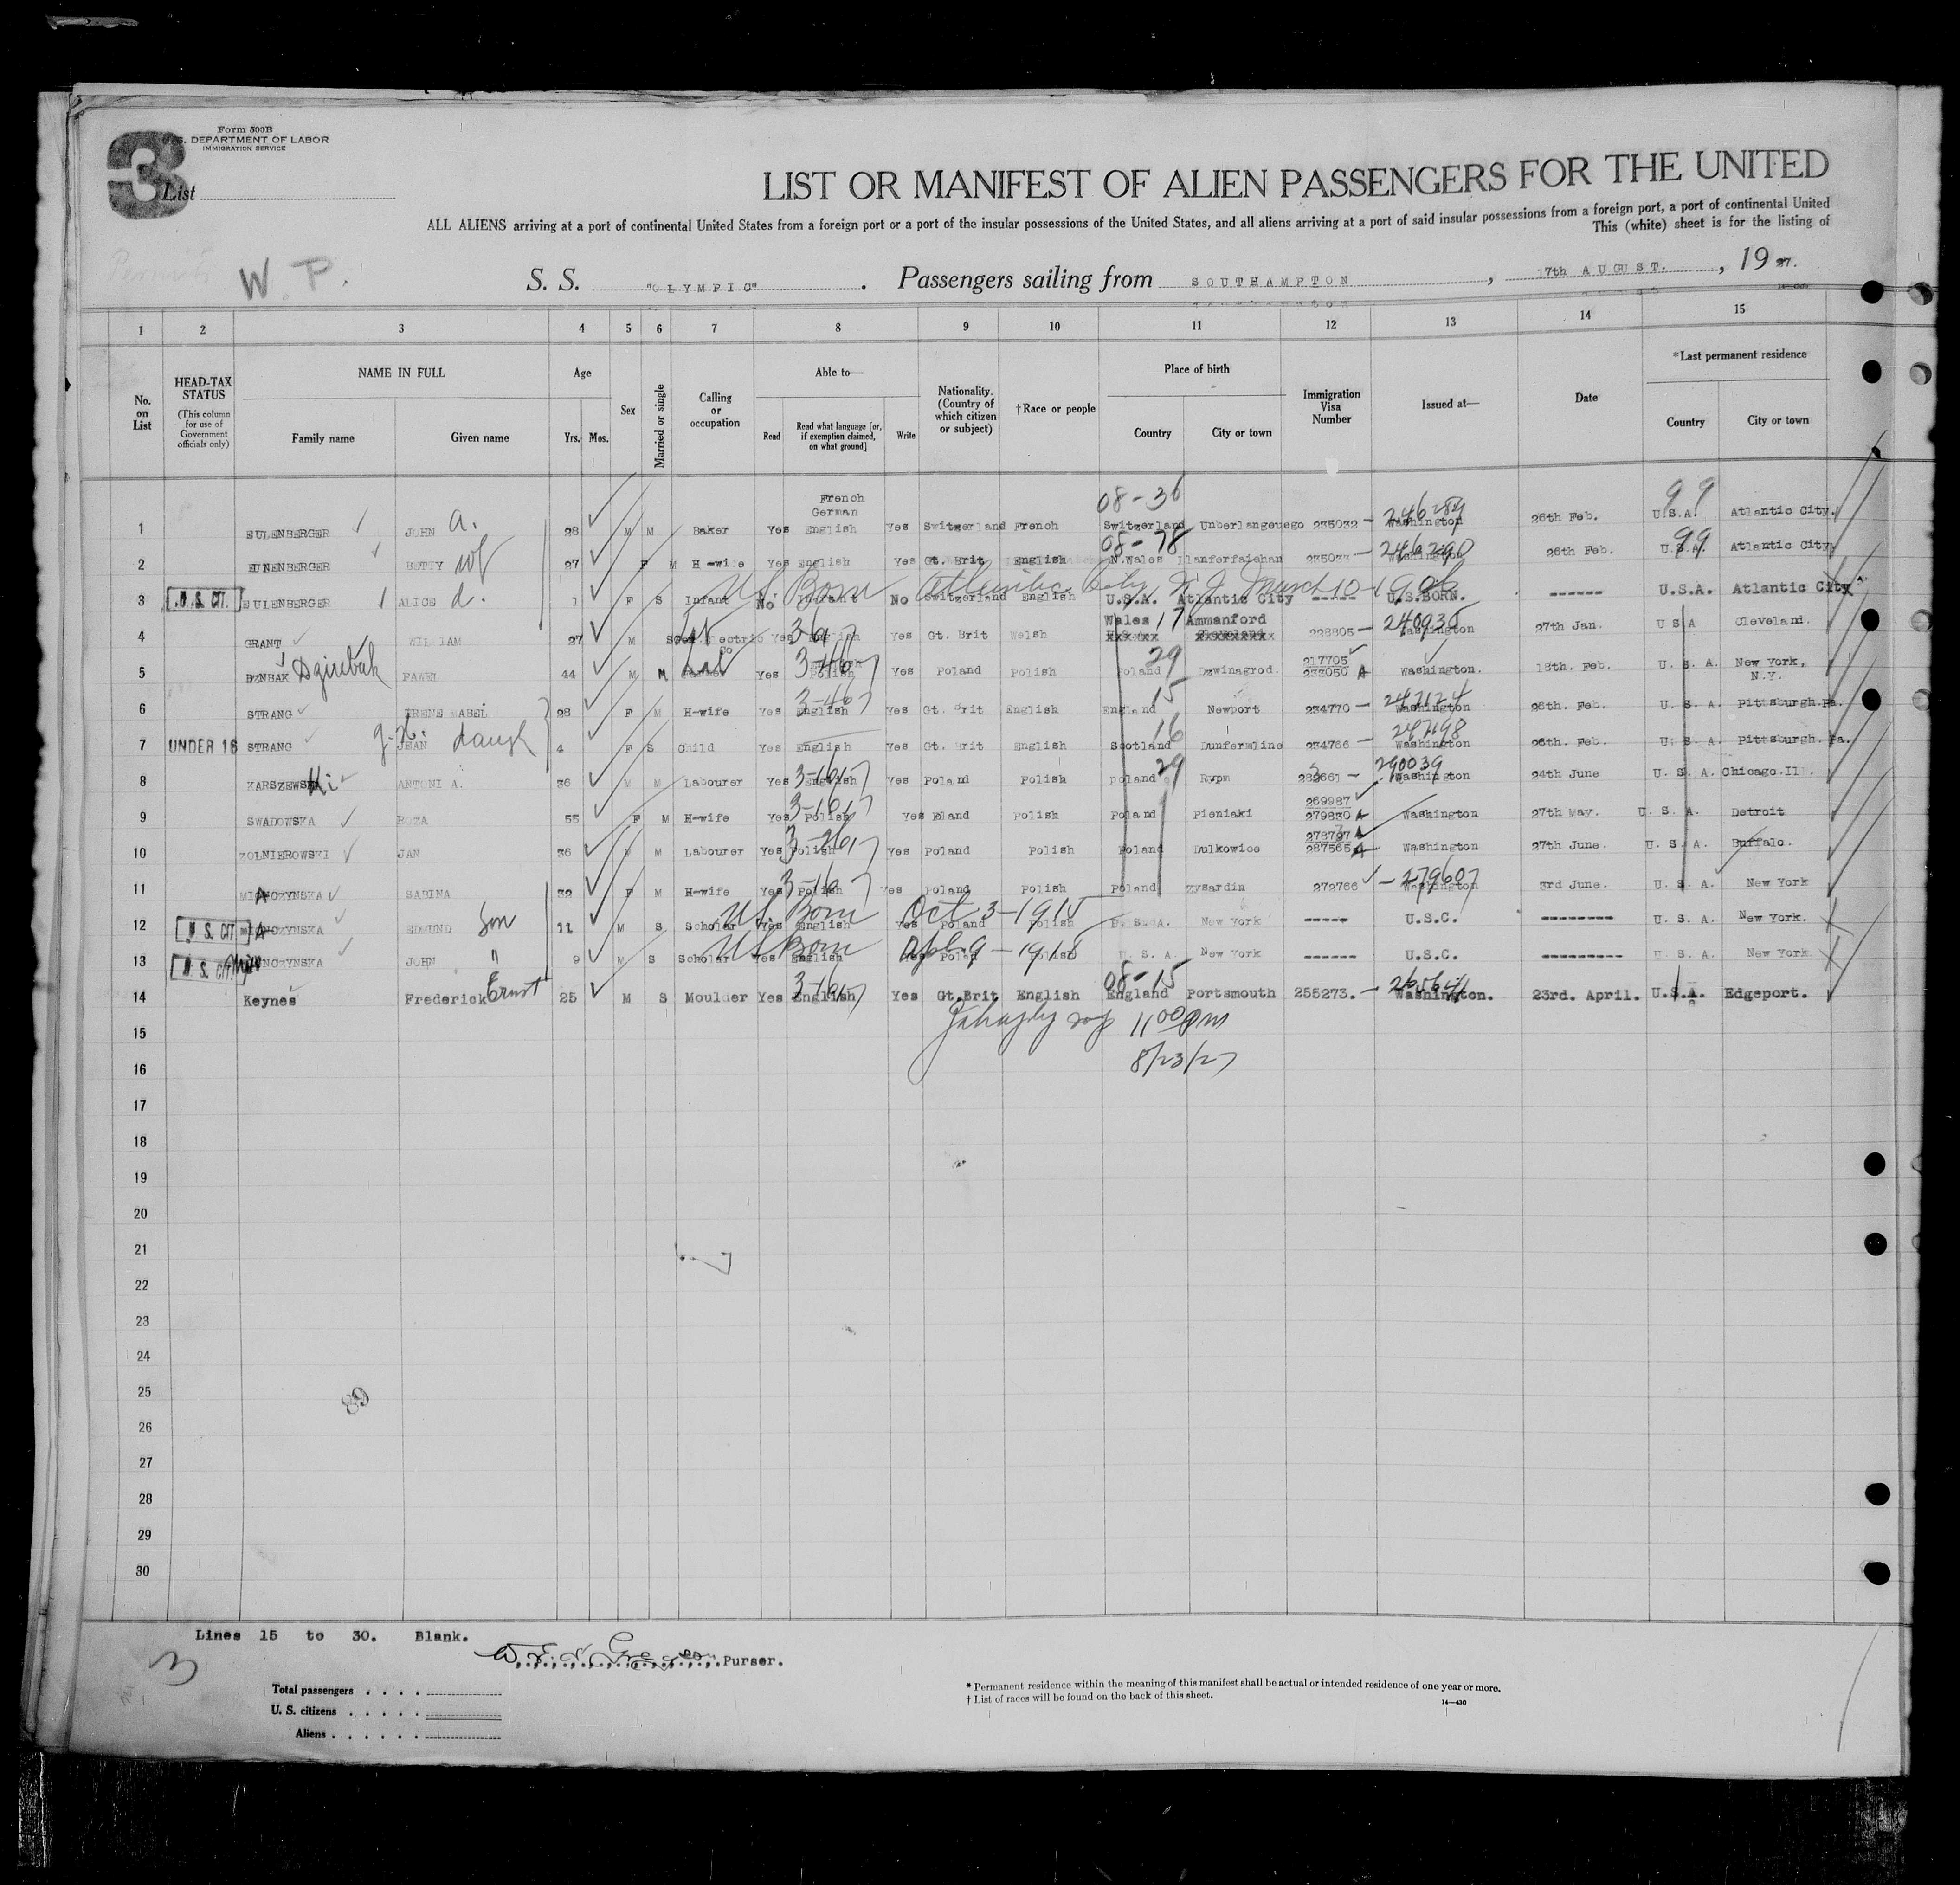 3
Form 500B
U.S. DEPARTMENT OF LABOR
IMMIGRATION SERVICE
List
LIST OR MANIFEST OF ALIEN PASSENGERS FOR THE UNITED
ALL ALIENS arriving at a port of continental United States from a foreign port or a port of the insular possessions of the United States, and all aliens arriving at a port of said insular possessions from a foreign port, a port of continental United
This (white) sheet is for the listing of
W. P.
S. S. "OLYMPIC". Passengers sailing from SOUTHAMPTON, 17th AUGUST., 1927.
1 2 3 4 5 6 7 8 9 10 11 12 13 14 15
No. on List
HEAD-TAX STATUS (This column for use of Government officials only)
NAME IN FULL Family name Given name
Age Yrs. Mos.
Sex
Married or single
Calling or occupation
Able to— Read Read what language [or, if exemption claimed, on what ground] Write
Nationality. (Country of which citizen or subject)
†Race or people
Place of birth Country City or town
Immigration Visa Number
Issued at—
Date
*Last permanent residence Country City or town
French
German 08-36 99
1 EULENBERGER JOHN A. 28 M M Baker Yes English Yes Switzerland French Switzerland Unberlangenego 235032 - 246289 Washington 26th Feb. U.S.A. Atlantic City.
08-78 99
2 EULENBERGER BETTY wf 27 F M H-wife Yes English Yes Gt. Brit English N.Wales Llanferfaichan 235033 - 246290 Washington 26th Feb. U.S.A. Atlantic City.
US Born Atlantic City N J March 10-1926
3 U.S. CIT. EULENBERGER ALICE d. 1 F S Infant No Infant No Switzerland English U.S.A. Atlantic City ----- U.S.BORN. ------ U.S.A. Atlantic City
Wales 17 Ammanford
4 GRANT WILLIAM 27 M S Yes English Yes Gt. Brit Welsh 228805 - 240935 Washington 27th Jan. U S A Cleveland.
29 217705
5 DZNBAK Dzirebak PAWEL 44 M M Lab Yes Polish Yes Poland Polish Poland Dzwinagrod. 233050 A Washington. 18th. Feb. U. S. A. New York, N.Y.
3-467 15
6 STRANG IRENE MABEL 28 F M H-wife Yes English Yes Gt. Brit English England Newport 234770 - 247124 Washington 26th. Feb. U. S. A. Pittsburgh.Pa.
16
7 UNDER 16 STRANG JEAN daugh 4 F S Child Yes English Yes Gt. Brit English Scotland Dunfermline 234766 - 247198 Washington 26th. Feb. U. S. A. Pittsburgh. Pa.
3-167 29
8 KARSZEWSKI ANTONI A. 36 M M Labourer Yes English Yes Poland Polish Poland Rypm - 290039 Washington 24th June U. S. A. Chicago.Ill.
3-167 269987
9 SWADOWSKA ROZA 55 F M H-wife Yes Polish Yes Pland Polish Poland Pieniaki 279830 A Washington 27th May. U. S. A. Detroit
3-267 278707 A
10 ZOLNIEROWSKI JAN 36 M Labourer Yes Polish Yes Poland Polish Poland Dulkowice 287565 A Washington 27th June. U. S. A. Buffalo.
3-167
11 MIONCZYNSKA SABINA 32 F M H-wife Yes Polish Yes Poland Polish Poland Zysardin 272766 - 279607 Washington 3rd June. U. S. A. New York
US Born Oct 3-1915
12 U. S. CIT. MIONCZYNSKA EDMUND Son 11 M S Scholar Yes English Yes Poland Polish U.S.A. New York ----- U.S.C. -------- U. S. A. New York.
US Born 9-1918
13 U. S. CIT. MIONCZYNSKA JOHN " 9 M S Scholar Yes English Yes Poland Polish U. S. A. New York ------ U.S.C. --------- U. S. A. New York.
3-167 08-15
14 Keynes Frederick Ernst 25 M S Moulder Yes English Yes Gt.Brit English England Portsmouth 255273. - 265641 Washington. 23rd. April. U.S.A. Edgeport.
15 11 00 PM
16 8/23/27
17
18
19
20
21
22
23
24
25 89
26
27
28
29
30
Lines 15 to 30. Blank.
Purser.
3
Total passengers
U. S. citizens
Aliens
* Permanent residence within the meaning of this manifest shall be actual or intended residence of one year or more.
† List of races will be found on the back of this sheet.
14—430